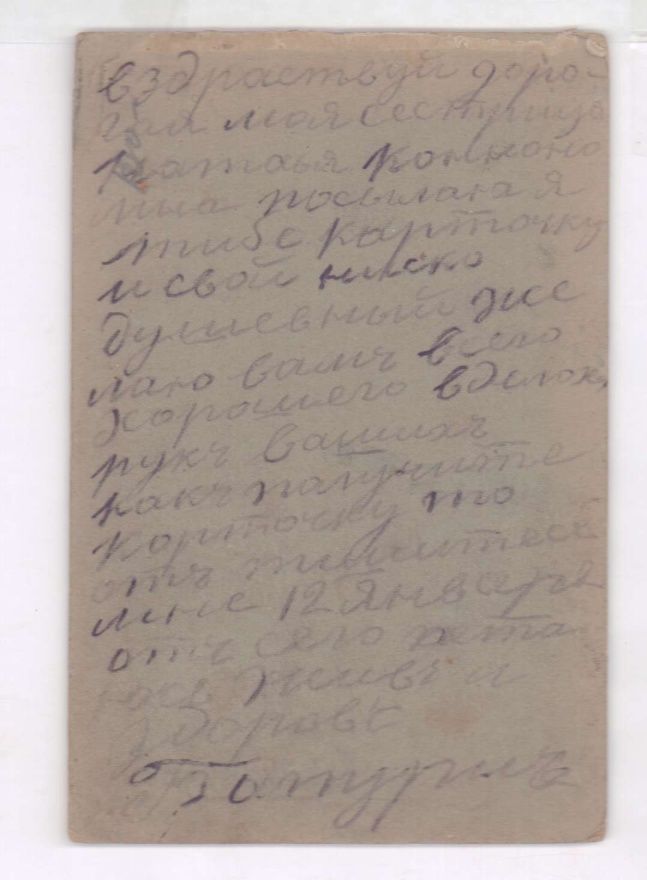 вздраствуй доро-
гая моя сестрица
Наталья
посылаю я
тибе карточку
и свой ниско
душевный же
лаю вамъ всего
хорошего вделахъ
рукъ вашихъ
какъ палучите
карточку то
отъ пишитесь
мне 12 Января
отъ сяго
живъ и
здоровъ